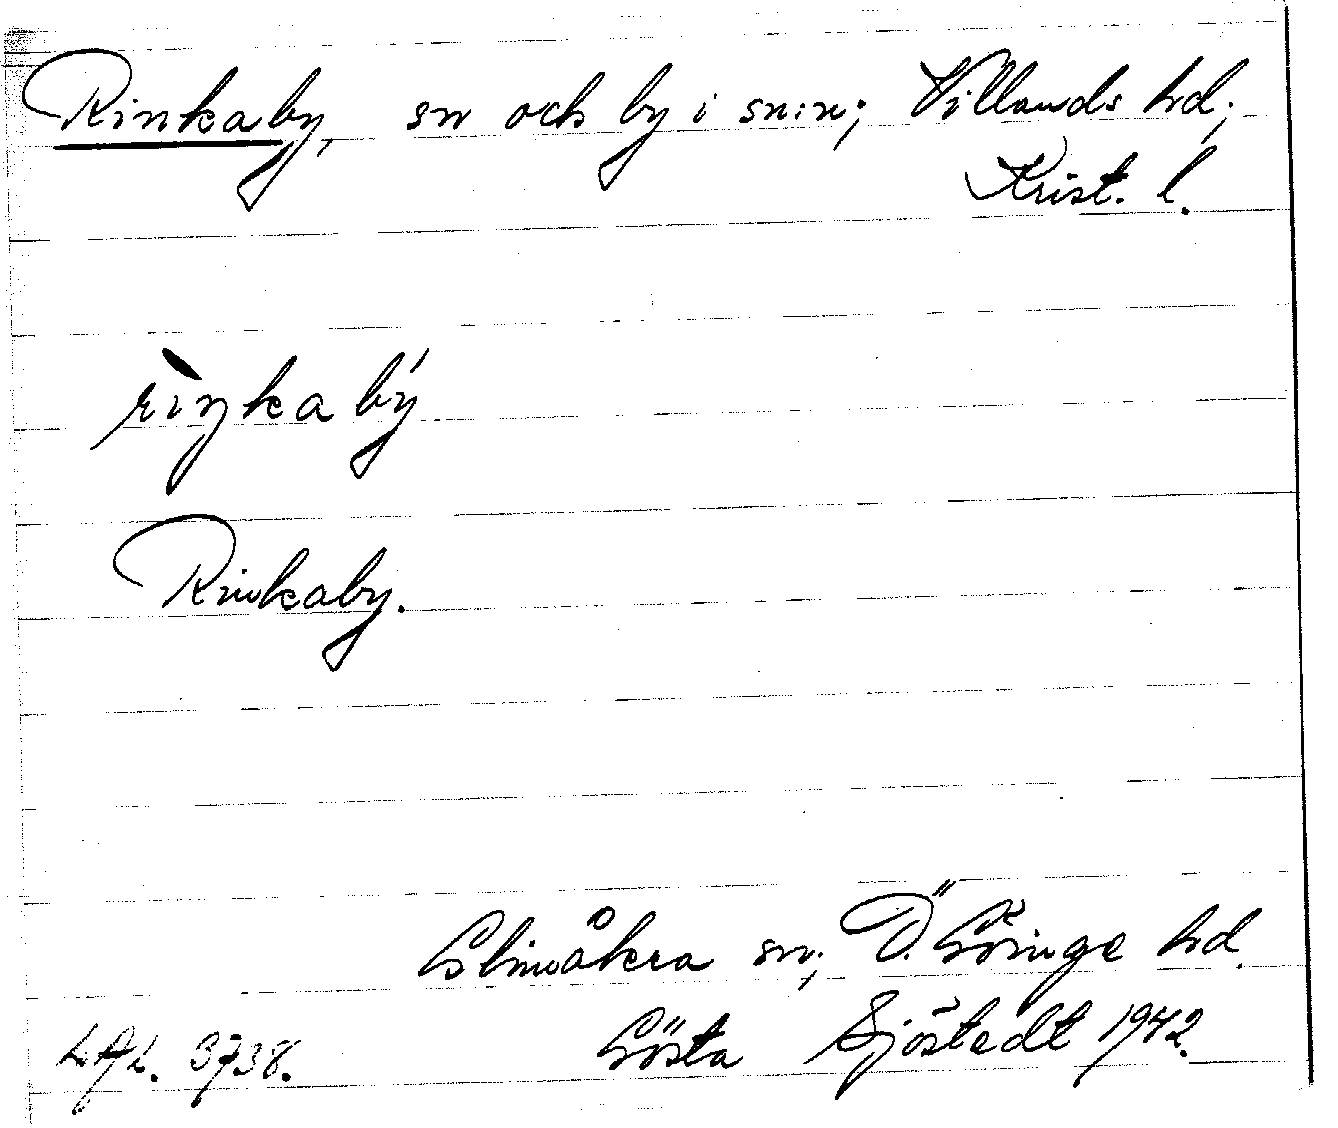 Rinkaby, sn och by i sn:n; Villands hd;
Krist. l.
rìŋkabý
Rinkaby.
Glimåkra sn; Ö. Göinge hd.
LAL. 3738. Gösta Sjöstedt 1942.